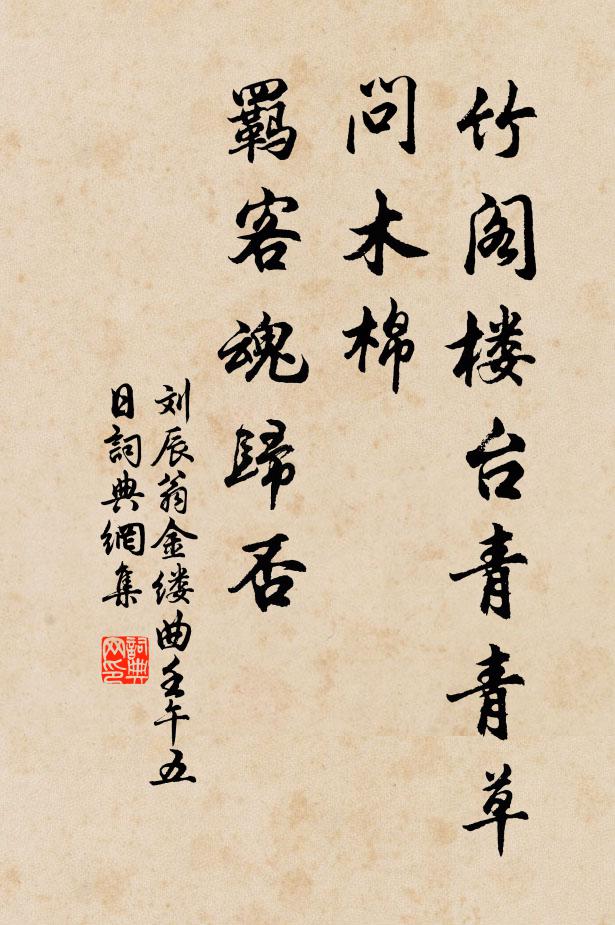 竹阁楼台青青草
问木棉
羁客魂歸否
刘辰翁金缕曲壬午五
日詞典網集
詞典
网印